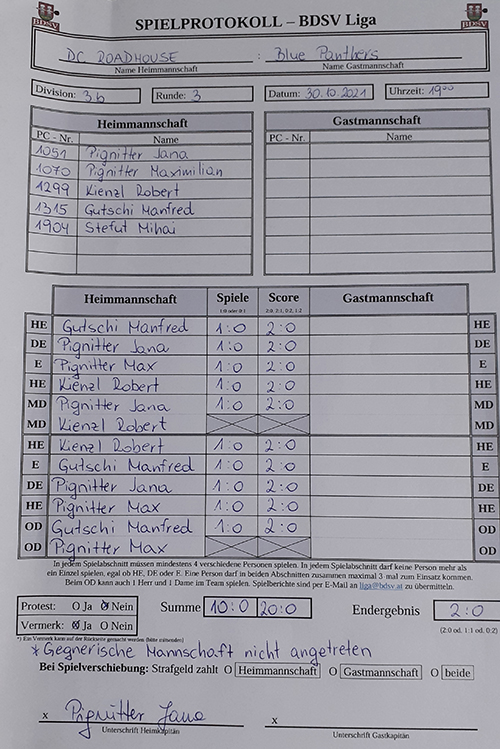 BDSV
SPIELPROTOKOLL – BDSV Liga
BDSV
DC ROADHOUSE : Blue Panthers
Name Heimmannschaft Name Gastmannschaft
Division: 3b Runde: 3 Datum: 30.10.2021 Uhrzeit: 19⁰⁰
Heimmannschaft Gastmannschaft
PC - Nr. Name PC - Nr. Name
1051 Pignitter Jana
1070 Pignitter Maximilian
1299 Kienzl Robert
1315 Gutschi Manfred
1904 Stefut Mihai
Heimmannschaft Spiele Score Gastmannschaft
1:0 oder 0:1 2:0, 2:1, 0:2, 1:2
HE Gutschi Manfred 1:0 2:0 HE
DE Pignitter Jana 1:0 2:0 DE
E Pignitter Max 1:0 2:0 E
HE Kienzl Robert 1:0 2:0 HE
MD Pignitter Jana 1:0 2:0 MD
MD Kienzl Robert MD
HE Kienzl Robert 1:0 2:0 HE
E Gutschi Manfred 1:0 2:0 E
DE Pignitter Jana 1:0 2:0 DE
HE Pignitter Max 1:0 2:0 HE
OD Gutschi Manfred 1:0 2:0 OD
OD Pignitter Max OD
In jedem Spielabschnitt müssen mindestens 4 verschiedene Personen spielen. In jedem Spielabschnitt darf keine Person mehr als
ein Einzel spielen, egal ob HE, DE oder E. Eine Person darf in beiden Abschnitten zusammen maximal 3 mal zum Einsatz kommen.
Beim OD kann auch 1 Herr und 1 Dame im Team spielen. Spielberichte sind per E-Mail an liga@bdsv.at zu übermitteln.
Protest: O Ja Nein Summe 10:0 20:0 Endergebnis 2:0
Vermerk: Ja O Nein (2:0 od. 1:1 od. 0:2)
*) Ein Vermerk kann auf der Rückseite gemacht werden (bitte mitsenden)
* Gegnerische Mannschaft nicht angetreten
Bei Spielverschiebung: Strafgeld zahlt O Heimmannschaft O Gastmannschaft O beide
x Pignitter Jana x
Unterschrift Heimkapitän Unterschrift Gastkapitän